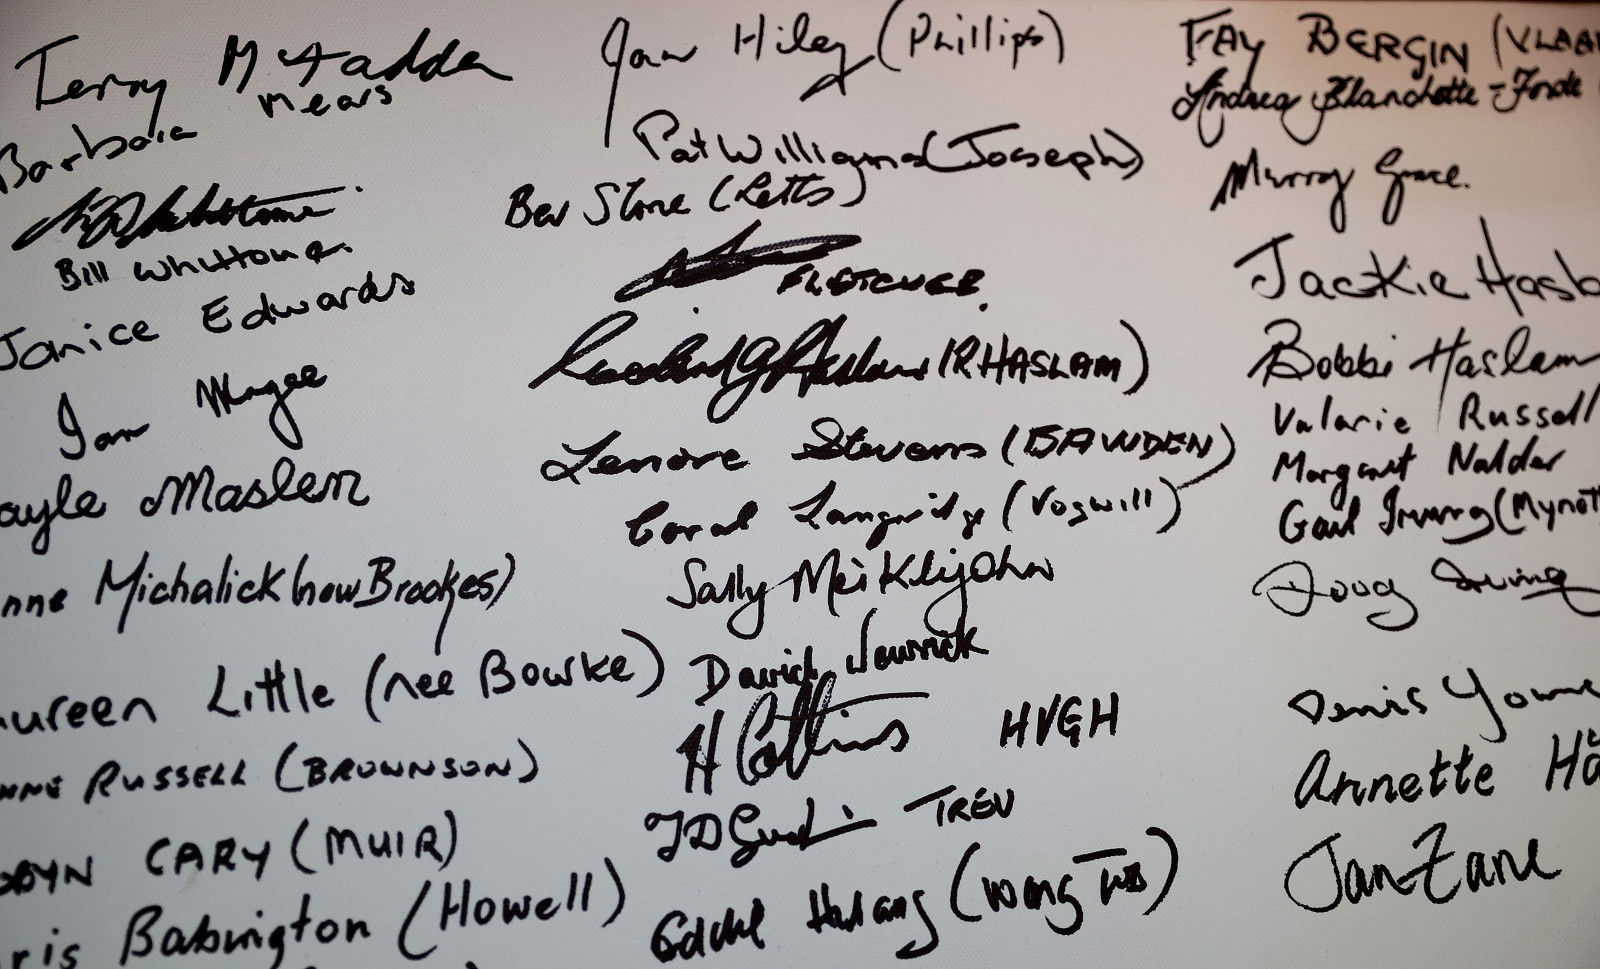 Terry McFadden
Barbara Mears
Bill Whittome
Janice Edwards
Ian Magee
ayle Maslen
nne Michalick (now Brookes)
ureen Little (nee Bowke)
NNE RUSSELL (BROWNSON)
OBYN CARY (MUIR)
ris Babington (Howell)
Jan Hiley (Phillips)
Pat Williams (Joseph)
Bev Stone (Letts)
FLETCHER
(R HASLAM)
Lenore Stevens (BAWDEN)
Coral (Vogwill)
Sally Meiklejohn
David
H Collins HUGH
TREV
(Wong
FAY BERGIN (VLAA
Andrea Blanchette-Forde
Murray Grace.
Jackie Hasl
Bobbi Haslam
Valarie Russell
Margaret Nalder
Gail Irving (Mynot
Doug Irving
Denis Young
Annette Ha
Jan Zane